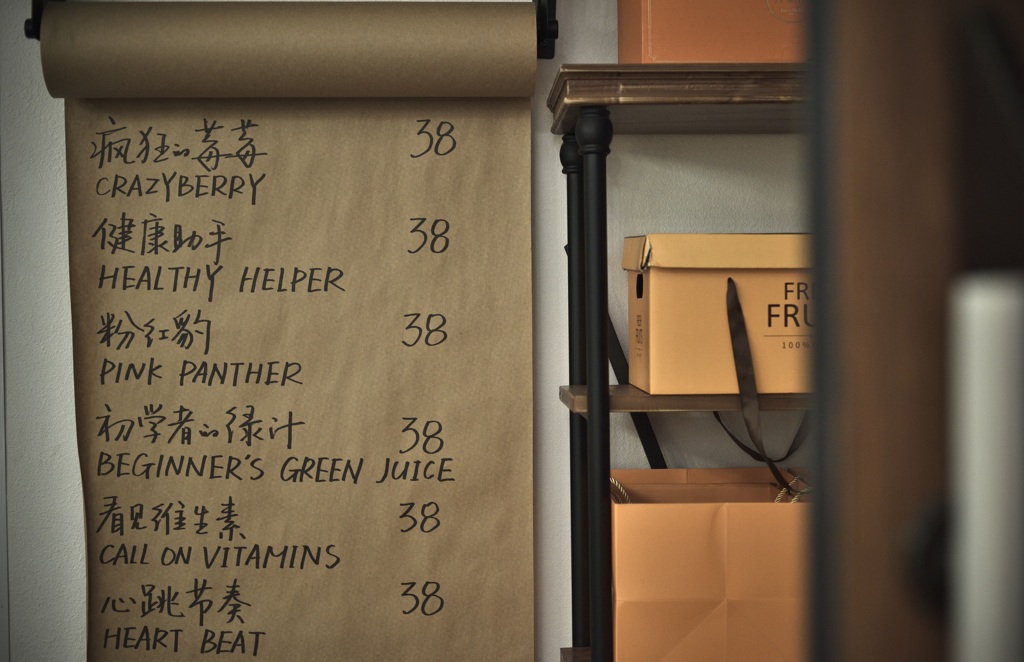 疯狂的莓莓 38
CRAZYBERRY
健康助手 38
HEALTHY HELPER
粉红豹 38
PINK PANTHER
初学者的绿汁 38
BEGINNER'S GREEN JUICE
看见维生素 38
CALL ON VITAMINS
心跳节奏 38
HEART BEAT
FR
FRU
100%